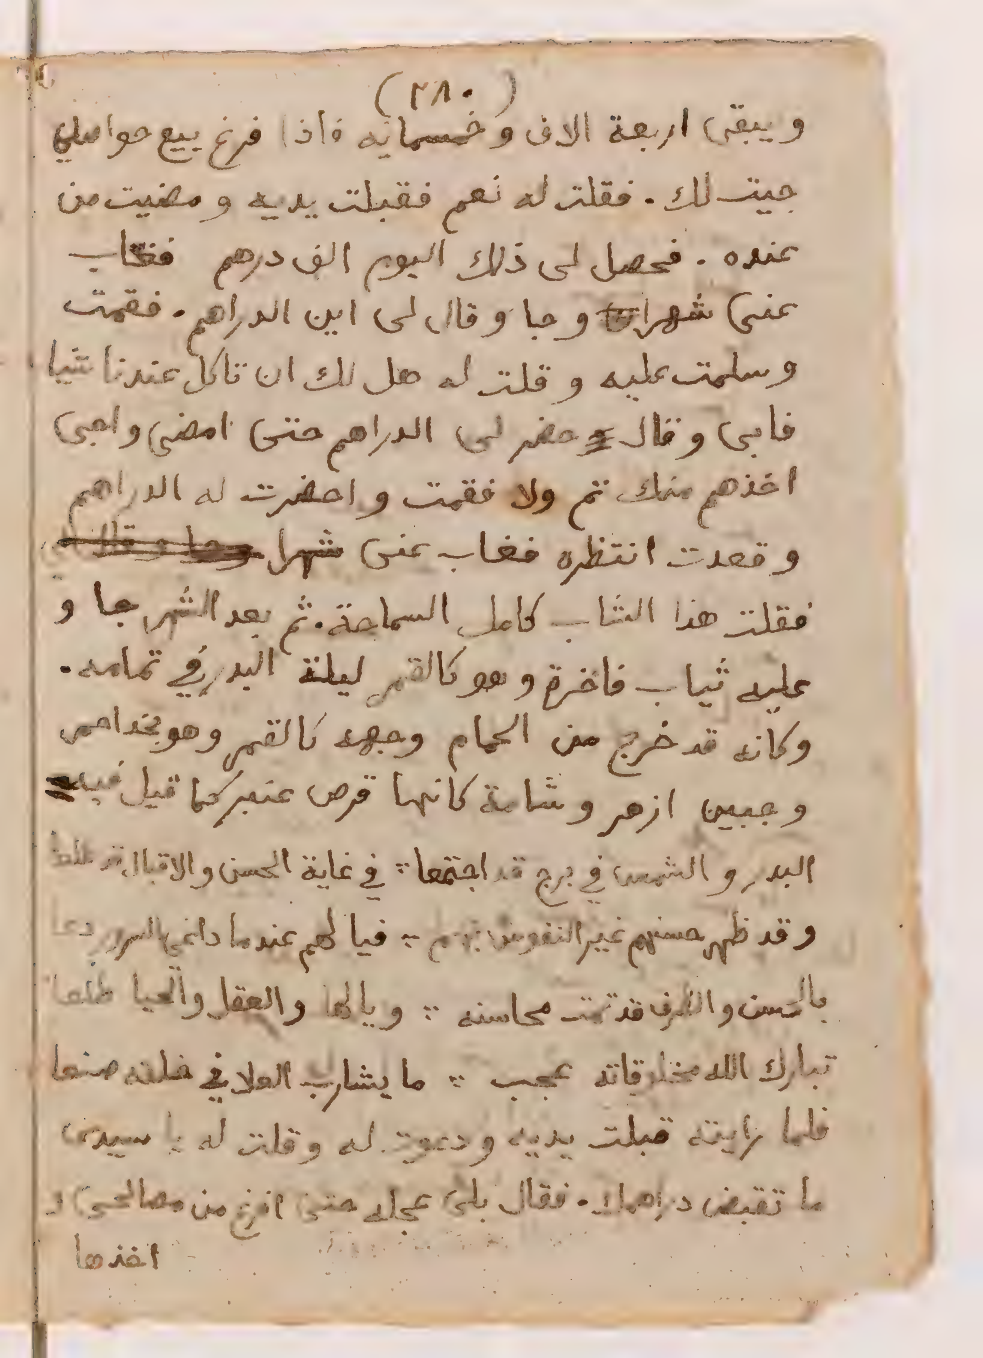 (٢٨٠)
ويبقى اربعة الاف وخمسمايه فاذا فرغ بيع حواصلي
جيت لك. فقلت له نعم فقبلت يديه ومضيت من
عنده. فحصل لى ذلك اليوم الف درهم فغاب
عنى شهرا وجا وقال لى اين الدراهم. فقمت
وسلمت عليه وقلت له هل لك ان تاكل عندنا شيا
فابى وقال حضر لى الدراهم حتى امضى واجى
اخذهم منك تم ولا فقمت واحضرت له الدراهم
وقعدت انتظره فغاب عنى شهرا وجا وقال
فقلت هذا الشاب كامل السماحة. ثم بعد الشهر جا و
عليه ثياب فاخرة وهو كالقمر ليلة البدر في تمامه.
وكانه قد خرج من الحمام وجهه كالقمر وهو بخد احمر
وجبين ازهر وشامة كانها قرص عنبر كما قيل فيه
البدر والشمس في برج قد اجتمعا ∴ في غاية الحسن والاقبال قد طلعا
وقد ظهر حسنهم غير النفوس ∴ فيا لهم عندما داعي السرور دعا
بالحسن والظرف قد تمت محاسنه ∴ ويالها والعقل والحيا طلعا
تبارك الله مخلوقاته عجب ∴ ما يشارب العلا في خلقه صنعا
فلما رايته قبلت يديه ودعوت له وقلت له يا سيدى
ما تقبض دراهمك. فقال بلى عجله حتى افرغ من مصالحى و
اخذها